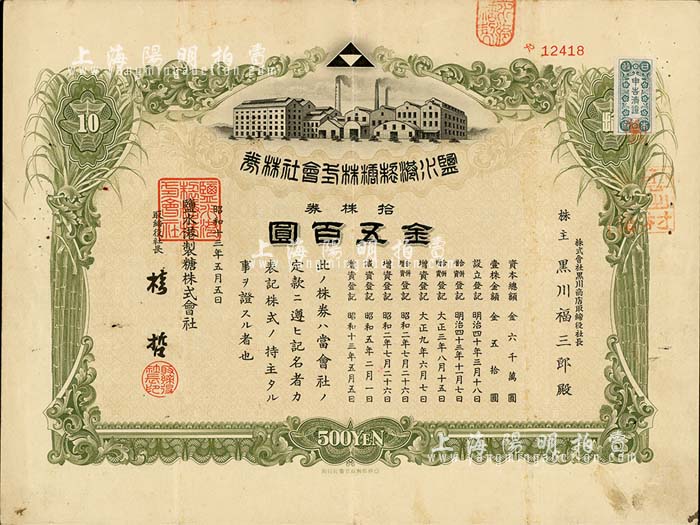 上海陽明拍賣
www.yangmingauction.com
12418
10
鹽水港製糖株式會社株券
拾株券
金五百圓
株式會社黒川商店取締役社長
株主 黒川福三郎殿
資本總額 金六千萬圓
壹株金額 金五拾圓
設立登記 明治四十年三月十八日
合併登記 明治四十三年十一月七日
合併登記 大正三年八月十五日
增資登記 大正九年六月七日
增資登記 昭和二年七月二十六日
減資登記 昭和五年二月一日
增資登記 昭和十三年五月五日
此ノ株券ハ當會社ノ
定款ニ遵ヒ記名者カ
表記株式ノ持主タル
事ヲ證スル者也
昭和十三年五月五日
鹽水港製糖株式會社
取締役社長 槇哲
500YEN
上海陽明拍賣
www.yangmingauction.com